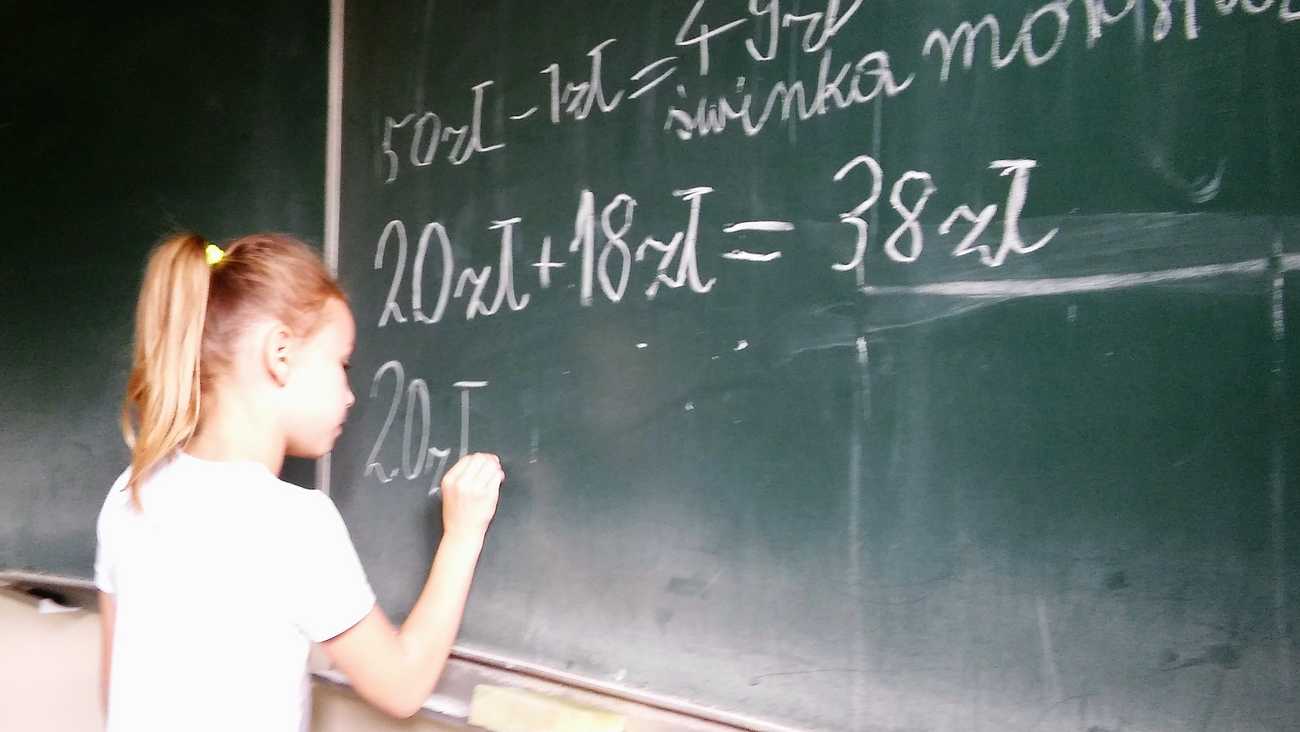 50zł - 1zł = 49zł
świnka morska
20zł + 18zł = 38zł
20zł